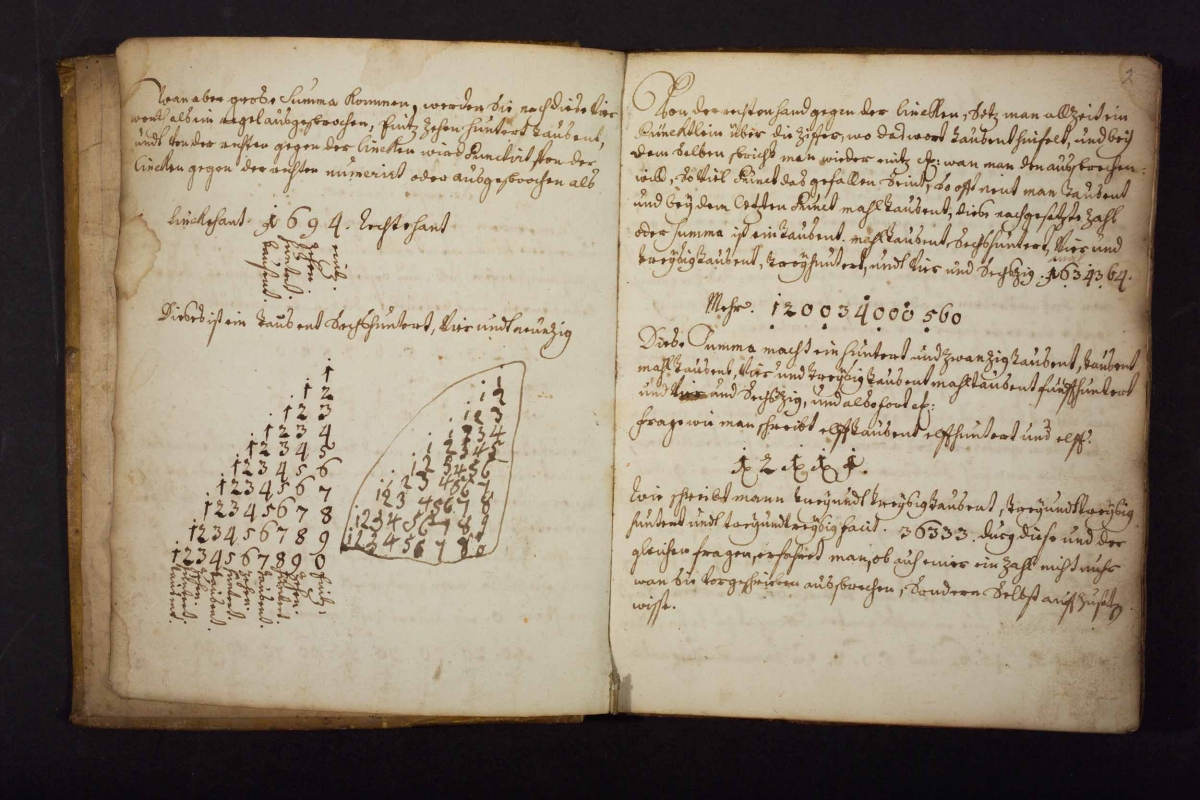 Wan aber große Summa Kommen, werden Sie nach diese Vier
wort als ein regel ausgesprochen, Einitz Zehen, Huntert Tausent,
undt von der rechten gegen der lincken wird Punctirt Von der
lincken gegen der rechten numerirt oder ausgesprochen als
linckehant. 1694. Rechtehant
einit.
Zehen.
huntert.
tausent.
Dieses ist ein Tausent Sechshuntert, Vier undt neunzig
1
12
123
1234
12345
123456
1234567
12345678
123456789
1234567890
12
123
1234
12345
123456
1234567
12345678
123456789
1234567890
2
Von der rechten hand gegen der lincken, Setz man allzeit ein
Püncktlein über die Ziffer, wo das wort tausent hinfelt, und bey
dem Selben spricht man wieder einitz &c: wan man den ausbrechen
will, So Viel Punct das gefallen Seint, So offt nent man tausent
und bey dem letzten Punct mahl tausent, diese nachgesetzte Zahl
oder Summa ist ein tausent. mahl tausent, Sechshuntert, Vier und
dreysig tausent, dreyhuntert, undt Vier und Sechszig. 1634364.
Mehr. 120034000560
Diese Summa macht ein huntert und zwanzig tausent, tausent
mahl tausent, Vier und dreysig tausent mahl tausent fünffhuntert
und und Sechszig, und also fort &c:
frage wie man schreibt elfftausent elffhuntert und elff.
12111.
Wie schreibt mann dreyundtdreysig tausent, dreyundtdreysig
huntert undt dreyundtreysig facit. 36333. durch diese und der
gleichen fragen, erfahret man, ob auch einer ein Zahl nicht nuhr
wan sie Vorgeschrieben aussprechen, Sondern Selbst auffzusetzen
wisse.